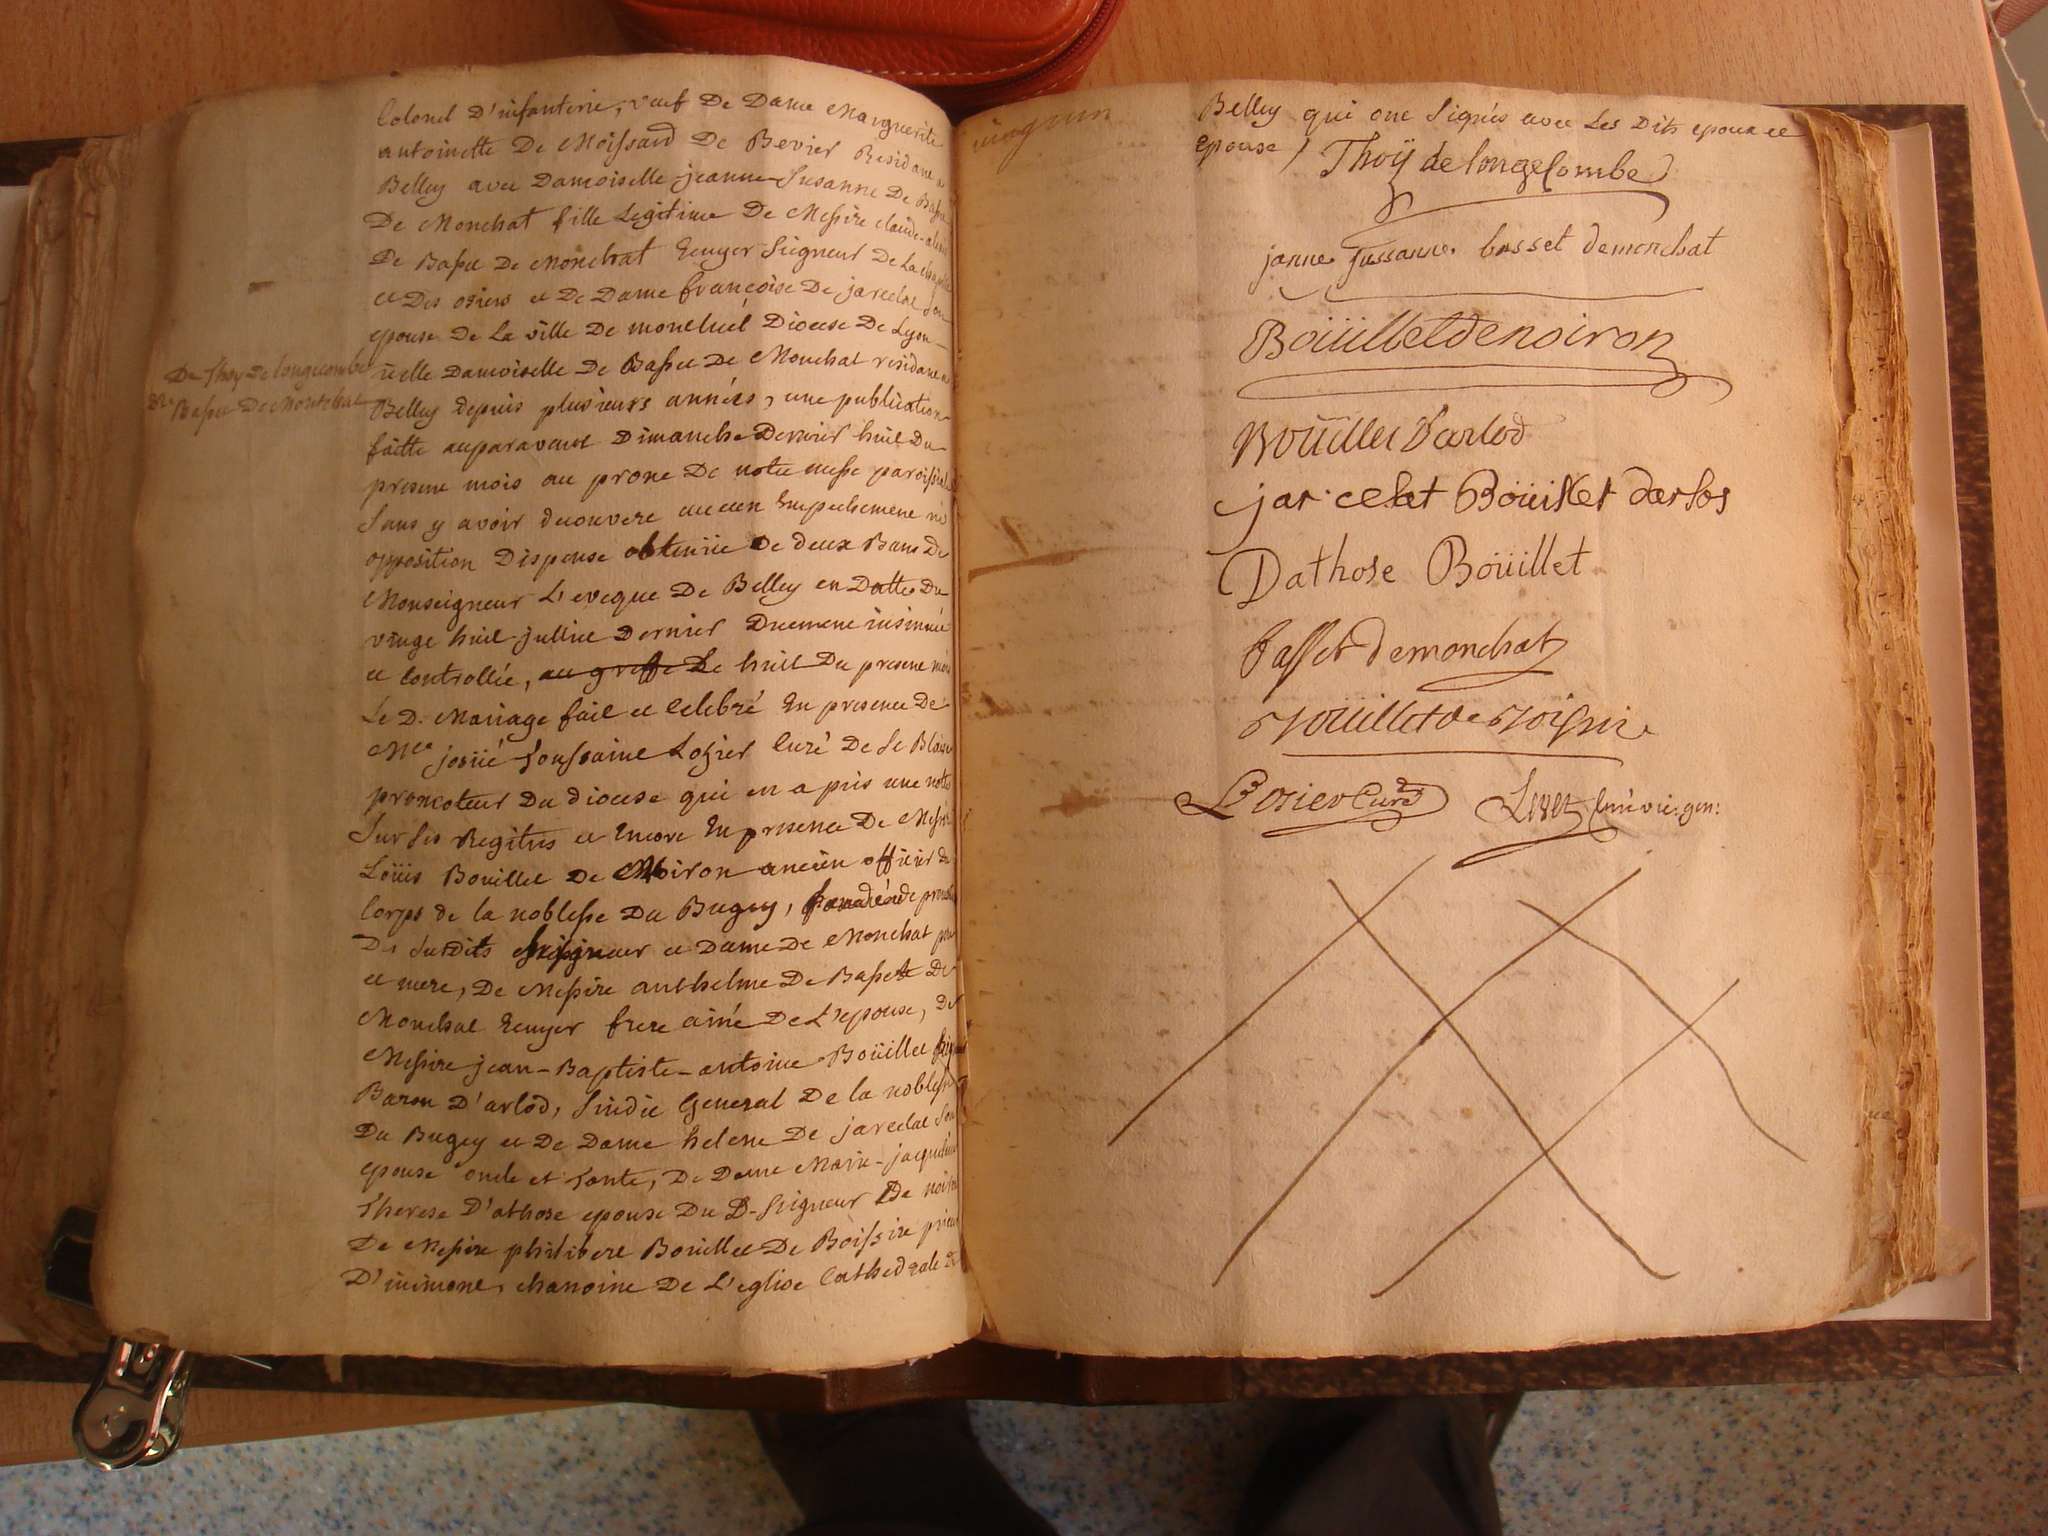 Colonel D'infanterie, veuf De Dame Marguerite
antoinette De Moissard De Bevier Residant a
Belley avec Damoiselle jeanne-Susanne De Basset
De Monchat fille Legitime De Messire claude-
De Basset De Monchat Ecuyer Seigneur De La chapelle
et Des osiers et De Dame françoise De jarcelat son
epouse De La ville De montluel Diocese De Lyon
icelle Damoiselle De Basset De Monchat residant a
De Thoy De longecombe
Basset De Montchat
Belley depuis plusieurs années, une publication
faitte auparavant Dimanche Dernier huit Du
present mois au prone De notre messe paroissiale
sans y avoir decouvert aucun Empechement ni
opposition Dispense obtenüe De deux Bans De
Monseigneur L'eveque De Belley en Datte Du
vingt huit juillet Dernier Duement insinuée
et Controllée, au greffe Le huit Du present mois
Le D. Mariage fait et Celebré En presence De
Me josüé Toussaint Lozier Curé De St Blaise
promoteur Du diocese qui en a pris une notte
Sur ses Regitres et Encore En presence De Messire
Loüis Bouillet De Noiron ancien officier du
Corps de la noblesse Du Bugey, de
Des Surdits Seigneur et Dame De Monchat pere
et mere, De Messire anthelme De Basset De
Monchat Ecuyer frere ainé De L'epouse, De
Messire jean-Baptiste-antoine Boüillet Seigneur
Baron D'arlod, Sindic General De la noblesse
Du Bugey et De Dame helene De jarcelat Son
epouse oncle et Tante, De Dame Marie-jacqueline
Therese D'athose epouse Du D. Seigneur De noiron
De Messire philibert Bouillet De Boissire prieur
D'inimont, chanoine De L'eglise Cathedrale De
Belley qui ont Signés avec Les Dits epoux et
epouse /
Thoÿ de longecombe
janne sussanne basset demonchat
Boüilletdenoiron
Boüillet D'arlod
jarcelat Boüillet darlos
Dathose Boüillet
basset demonchat
Losier Curé
Curé vic: gen: